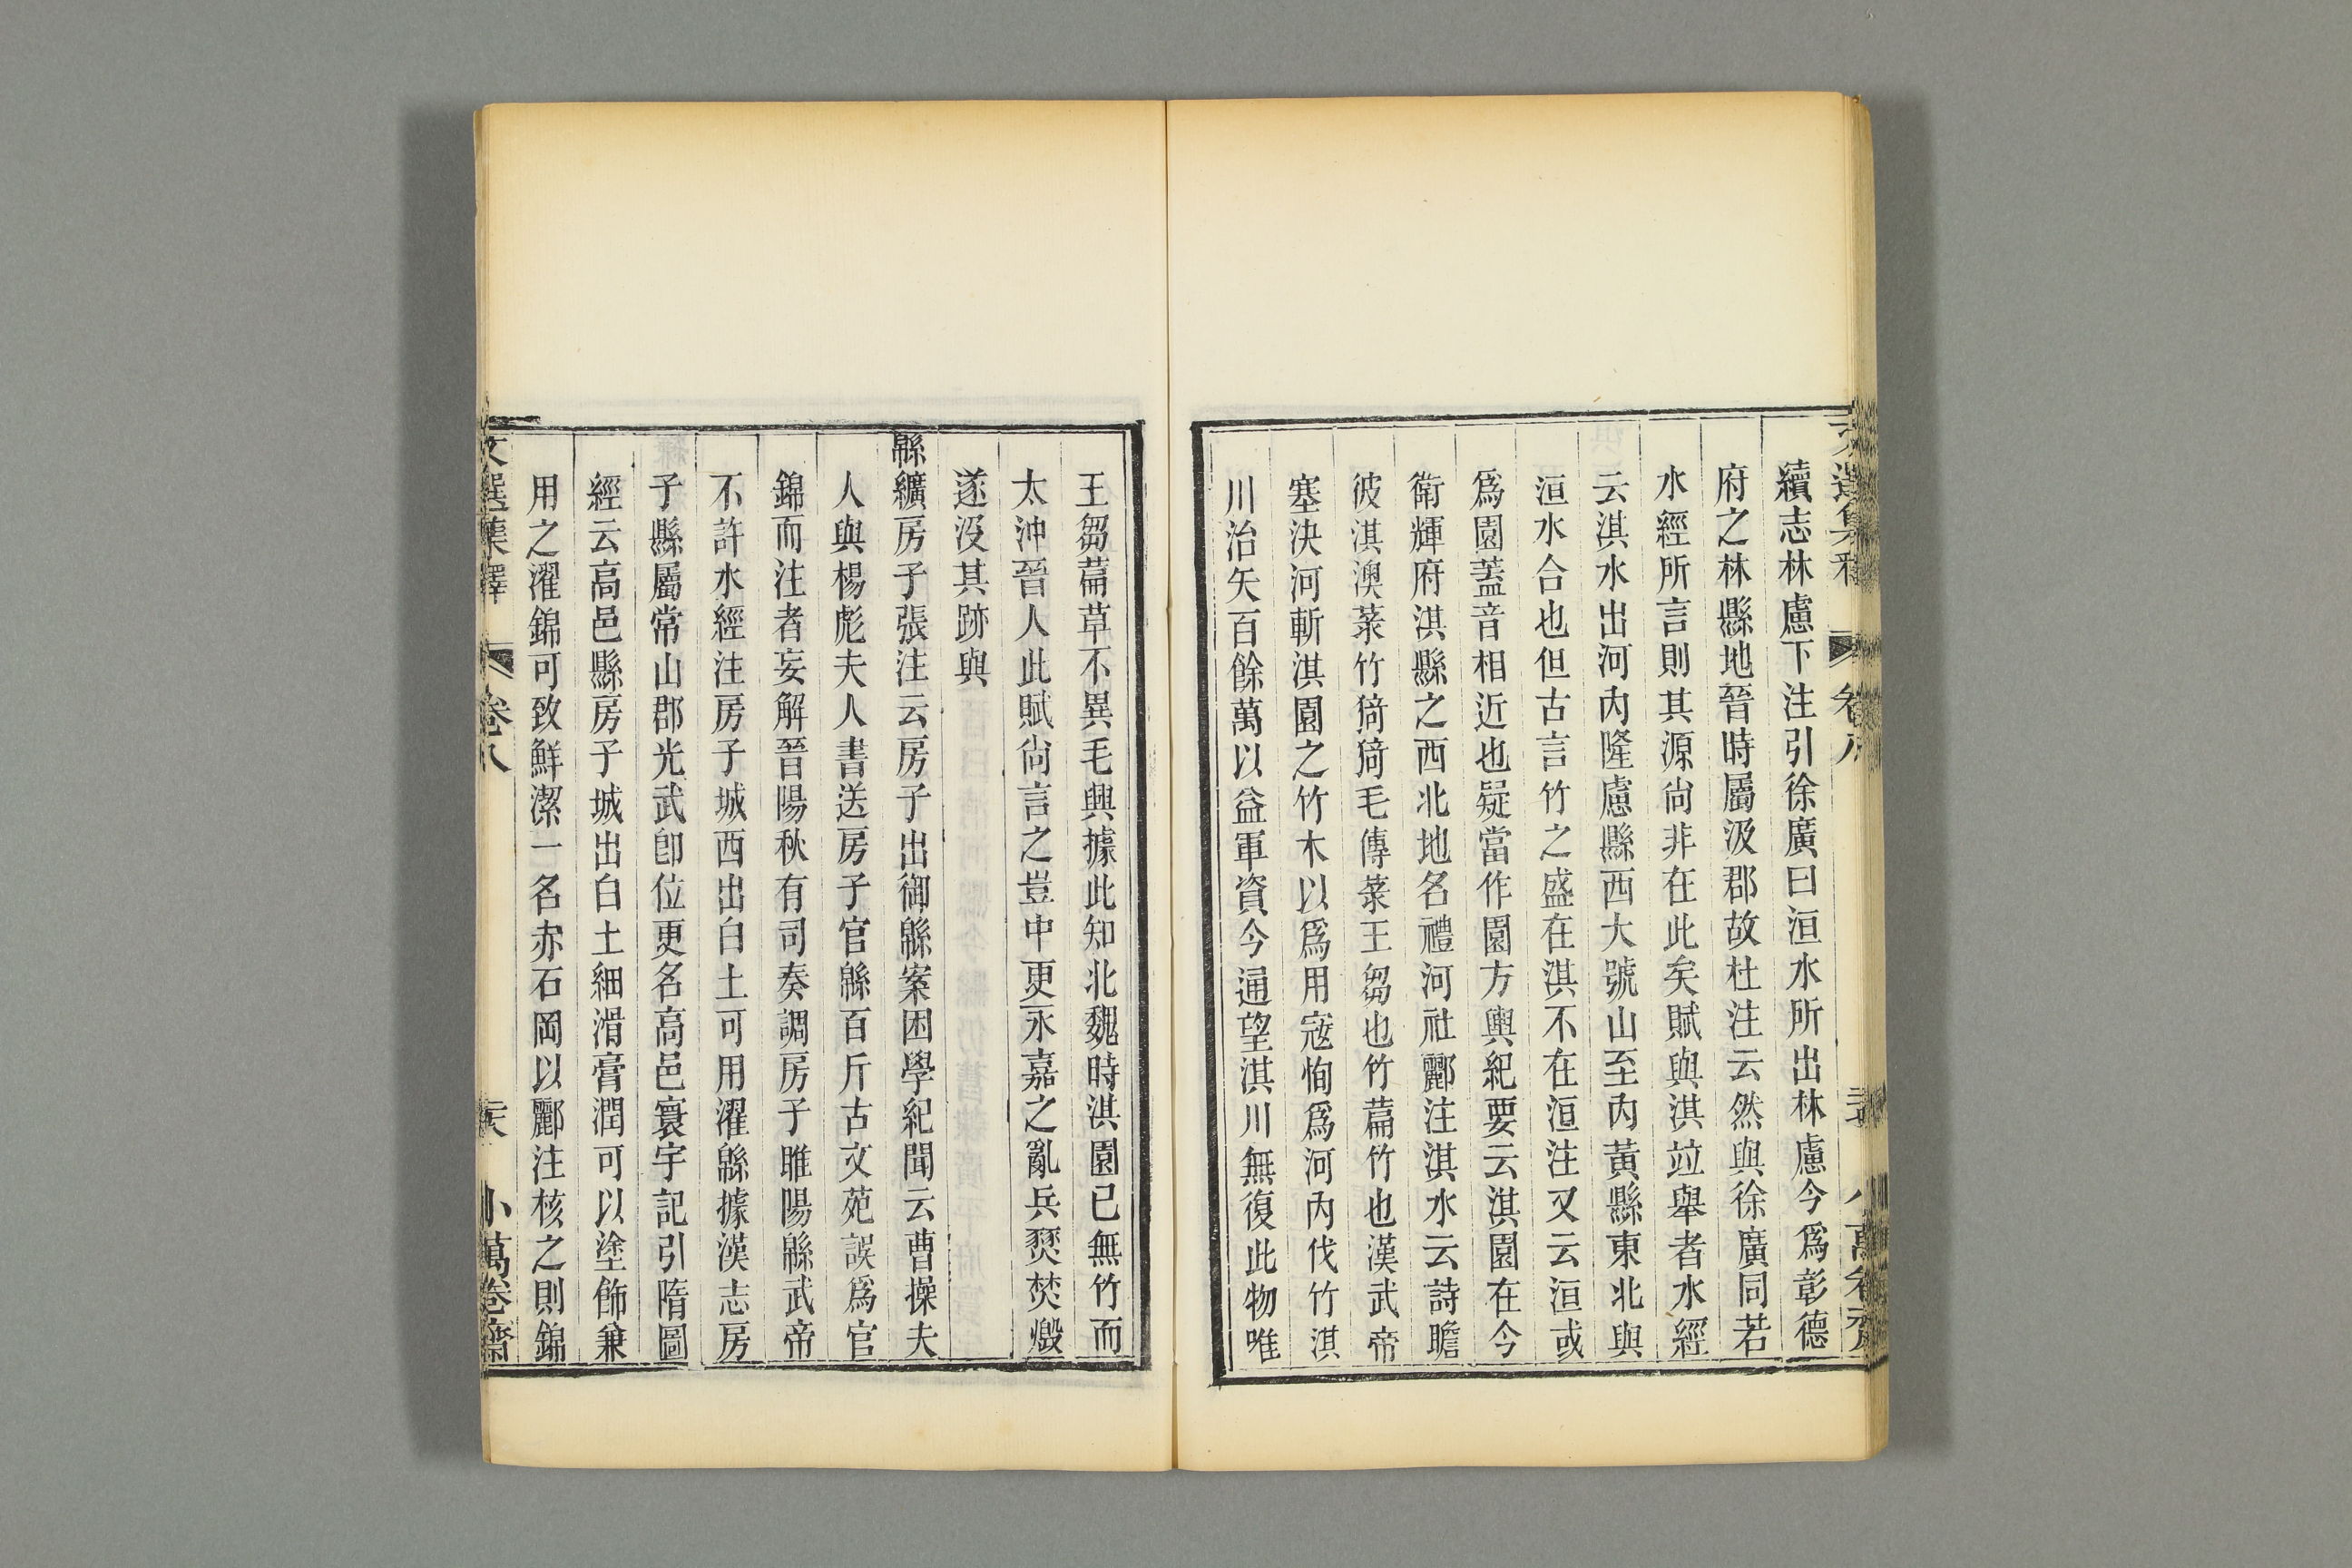 續志林慮下注引徐廣曰洹水所出林慮今爲彰德
府之林縣地晉時屬汲郡故杜注云然與徐廣同若
水經所言則其源尙非在此矣賦與淇竝舉者水經
云淇水出河內隆慮縣西大號山至內黃縣東北與
洹水合也但古言竹之盛在淇不在洹注又云洹或
爲園蓋音相近也疑當作園方輿紀要云淇園在今
衛輝府淇縣之西北地名禮河社酈注淇水云詩瞻
彼淇澳菉竹猗猗毛傳菉王芻也竹萹竹也漢武帝
塞決河斬淇園之竹木以爲用寇恂爲河內伐竹淇
川治矢百餘萬以益軍資今通望淇川無復此物唯
王芻萹草不異毛興據此知北魏時淇園已無竹而
太沖晉人此賦尙言之豈中更永嘉之亂兵燹焚燬
遂沒其跡與
緜纊房子張注云房子出御緜案困學紀聞云曹操夫
人與楊彪夫人書送房子官緜百斤古文苑誤爲官
錦而注者妄解晉陽秋有司奏調房子睢陽緜武帝
不許水經注房子城西出白土可用濯緜據漢志房
子縣屬常山郡光武卽位更名高邑寰宇記引隋圖
經云高邑縣房子城出白土細滑膏潤可以塗飾兼
用之濯錦可致鮮潔一名赤石岡以酈注核之則錦
文選集釋 卷八 小萬卷齋